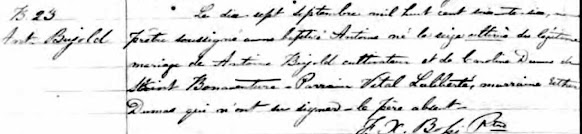 B 23
Ant. Bujold
Le dix sept Septembre mil huit cent soixante six, nous
prêtre soussigné avons baptisé Antoine né le seize du légitime
mariage de Antoine Bujold cultivateur et de Caroline Dumas de
Saint Bonaventure - Parrain Vital Laliberté, marraine Esther
Dumas qui n'ont su signer - le père absent.
F. X. Ptre